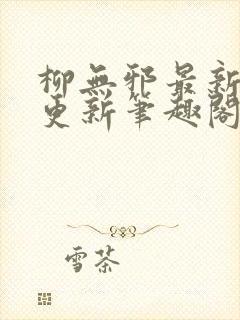 柳無邪最新
更新筆趣閣
雪茶